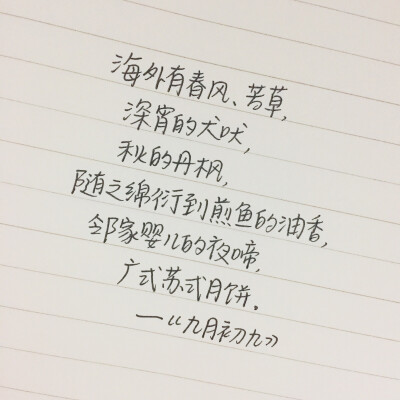 海外有春风、苦草,
深宵的犬吠,
秋的丹枫,
随之绵衍到煎鱼的油香,
邻家婴儿的夜啼,
广式苏式月饼.
—《九月初九》